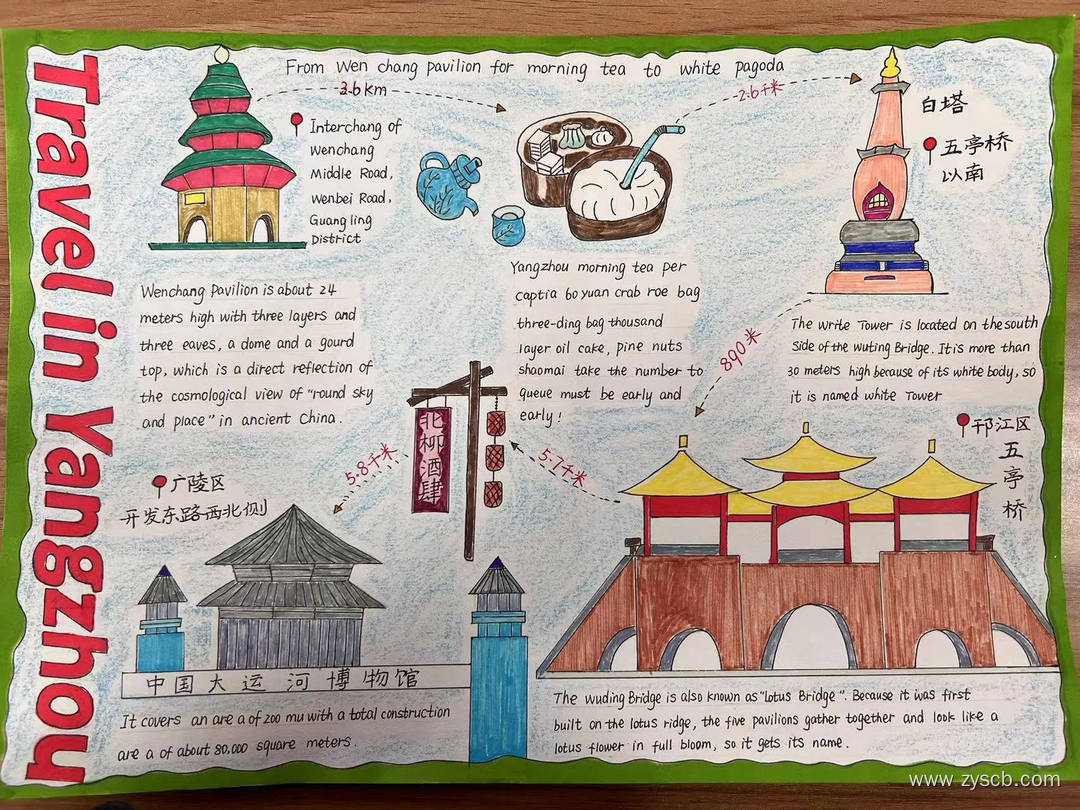 Travel in Yangzhou
From Wen chang pavilion for morning tea to white pagoda
3.6km
2.6千米
Interchang of
Wenchang
Middle Road,
Wenbei Road,
Guang ling
District
白塔
五亭桥
以南
Wenchang Pavilion is about 24
meters high with three layers and
three eaves, a dome and a gourd
top, which is a direct reflection of
the cosmological view of "round sky
and place" in ancient China.
Yangzhou morning tea per
captia 60 yuan crab roe bag
three-ding bag thousand
layer oil cake, pine nuts
shaomai take the number to
queue must be early and
early!
890米
The write Tower is located on the south
side of the wuting Bridge. It is more than
30 meters high because of its white body, so
it is named white Tower
邗江区
五
亭
桥
北
柳
酒
肆
5.7千米
5.8千米
广陵区
开发东路西北侧
中国大运河博物馆
It covers an are a of 200 mu with a total construction
are a of about 80,000 square meters.
The wuding Bridge is also known as "lotus Bridge". Because it was first
built on the lotus ridge, the five pavilions gather together and look like a
lotus flower in full bloom, so it gets its name.
www.zyscb.com